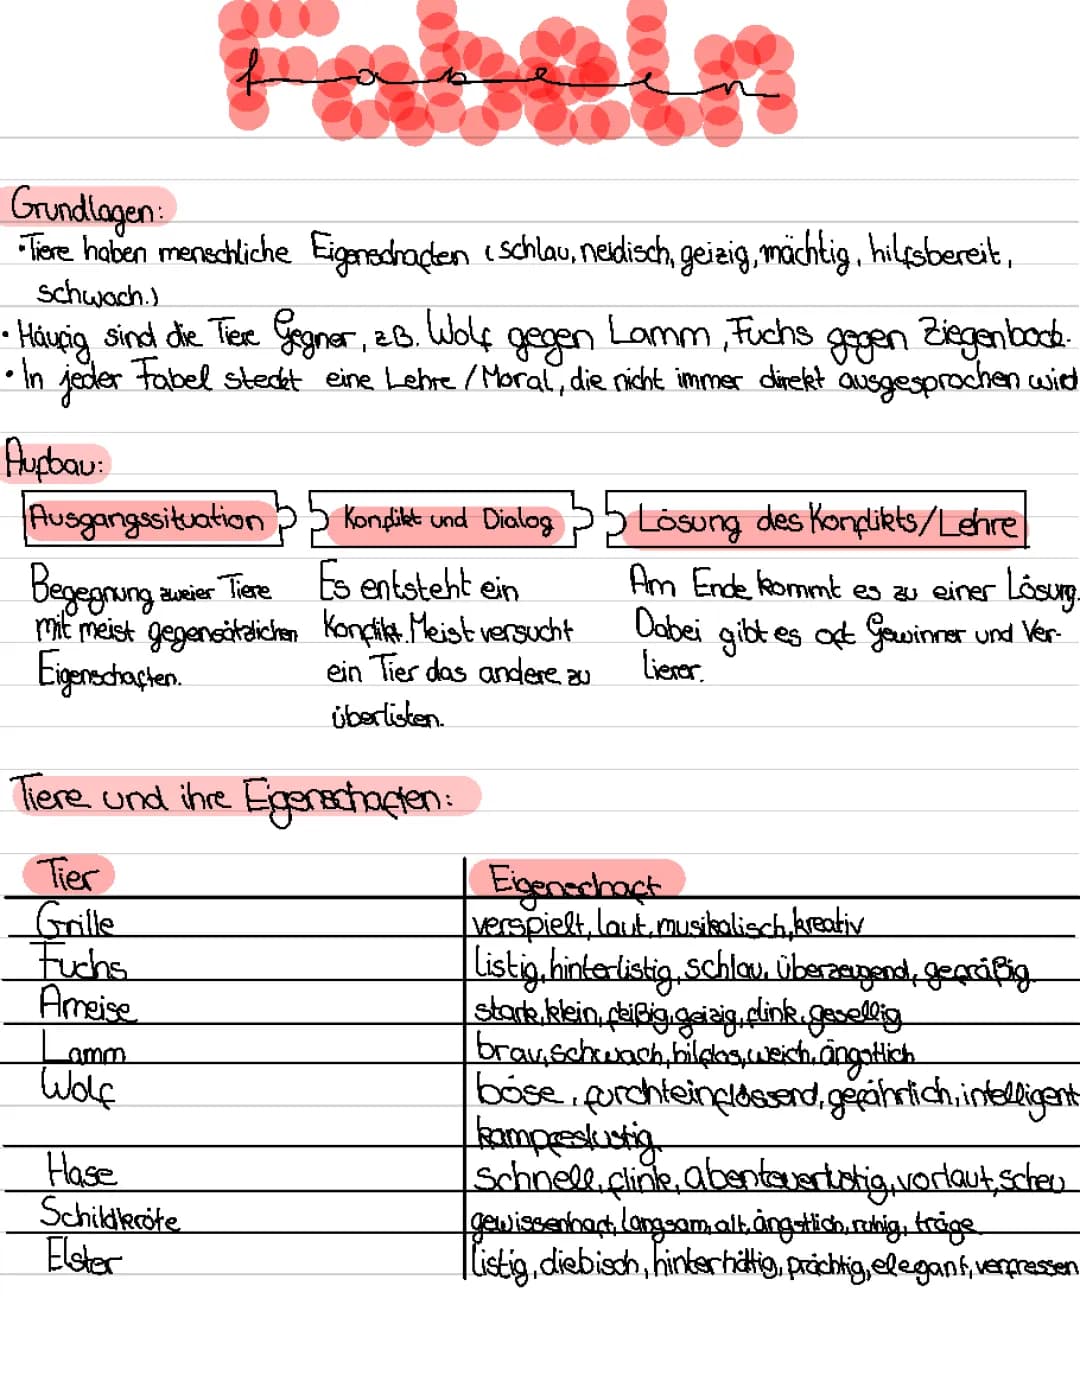 Fabeln
Grundlagen:
• Tiere haben menschliche Eigenschaften (schlau, neidisch, geizig, mächtig, hilfsbereit,
schwach.)
• Häufig sind die Tiere Gegner, z.B. Wolf gegen Lamm, Fuchs gegen Ziegenbock.
• In jeder Fabel steckt eine Lehre / Moral, die nicht immer direkt ausgesprochen wird
Aufbau:
Ausgangssituation Konflikt und Dialog Lösung des Konflikts/Lehre
Begegnung zweier Tiere Es entsteht ein Am Ende kommt es zu einer Lösung.
mit meist gegensätzlichen Konflikt. Meist versucht Dabei gibt es oft Gewinner und Ver-
Eigenschaften. ein Tier das andere zu lierer.
überlisten.
Tiere und ihre Eigenschaften:
Tier Eigenschaft
Grille verspielt, laut, musikalisch, kreativ
Fuchs listig, hinterlistig, schlau, überzeugend, gefräßig
Ameise stark, klein, fleißig, geizig, flink, gesellig
Lamm brav, schwach, hilflos, weich, ängstlich
Wolf böse, furchteinflössend, gefährlich, intelligent
kampfeslustig
Hase schnell, flink, abenteuerlustig, vorlaut, scheu
Schildkröte gewissenhaft, langsam, alt, ängstlich, ruhig, träge
Elster listig, diebisch, hinterhältig, prächtig, elegant, verfressen